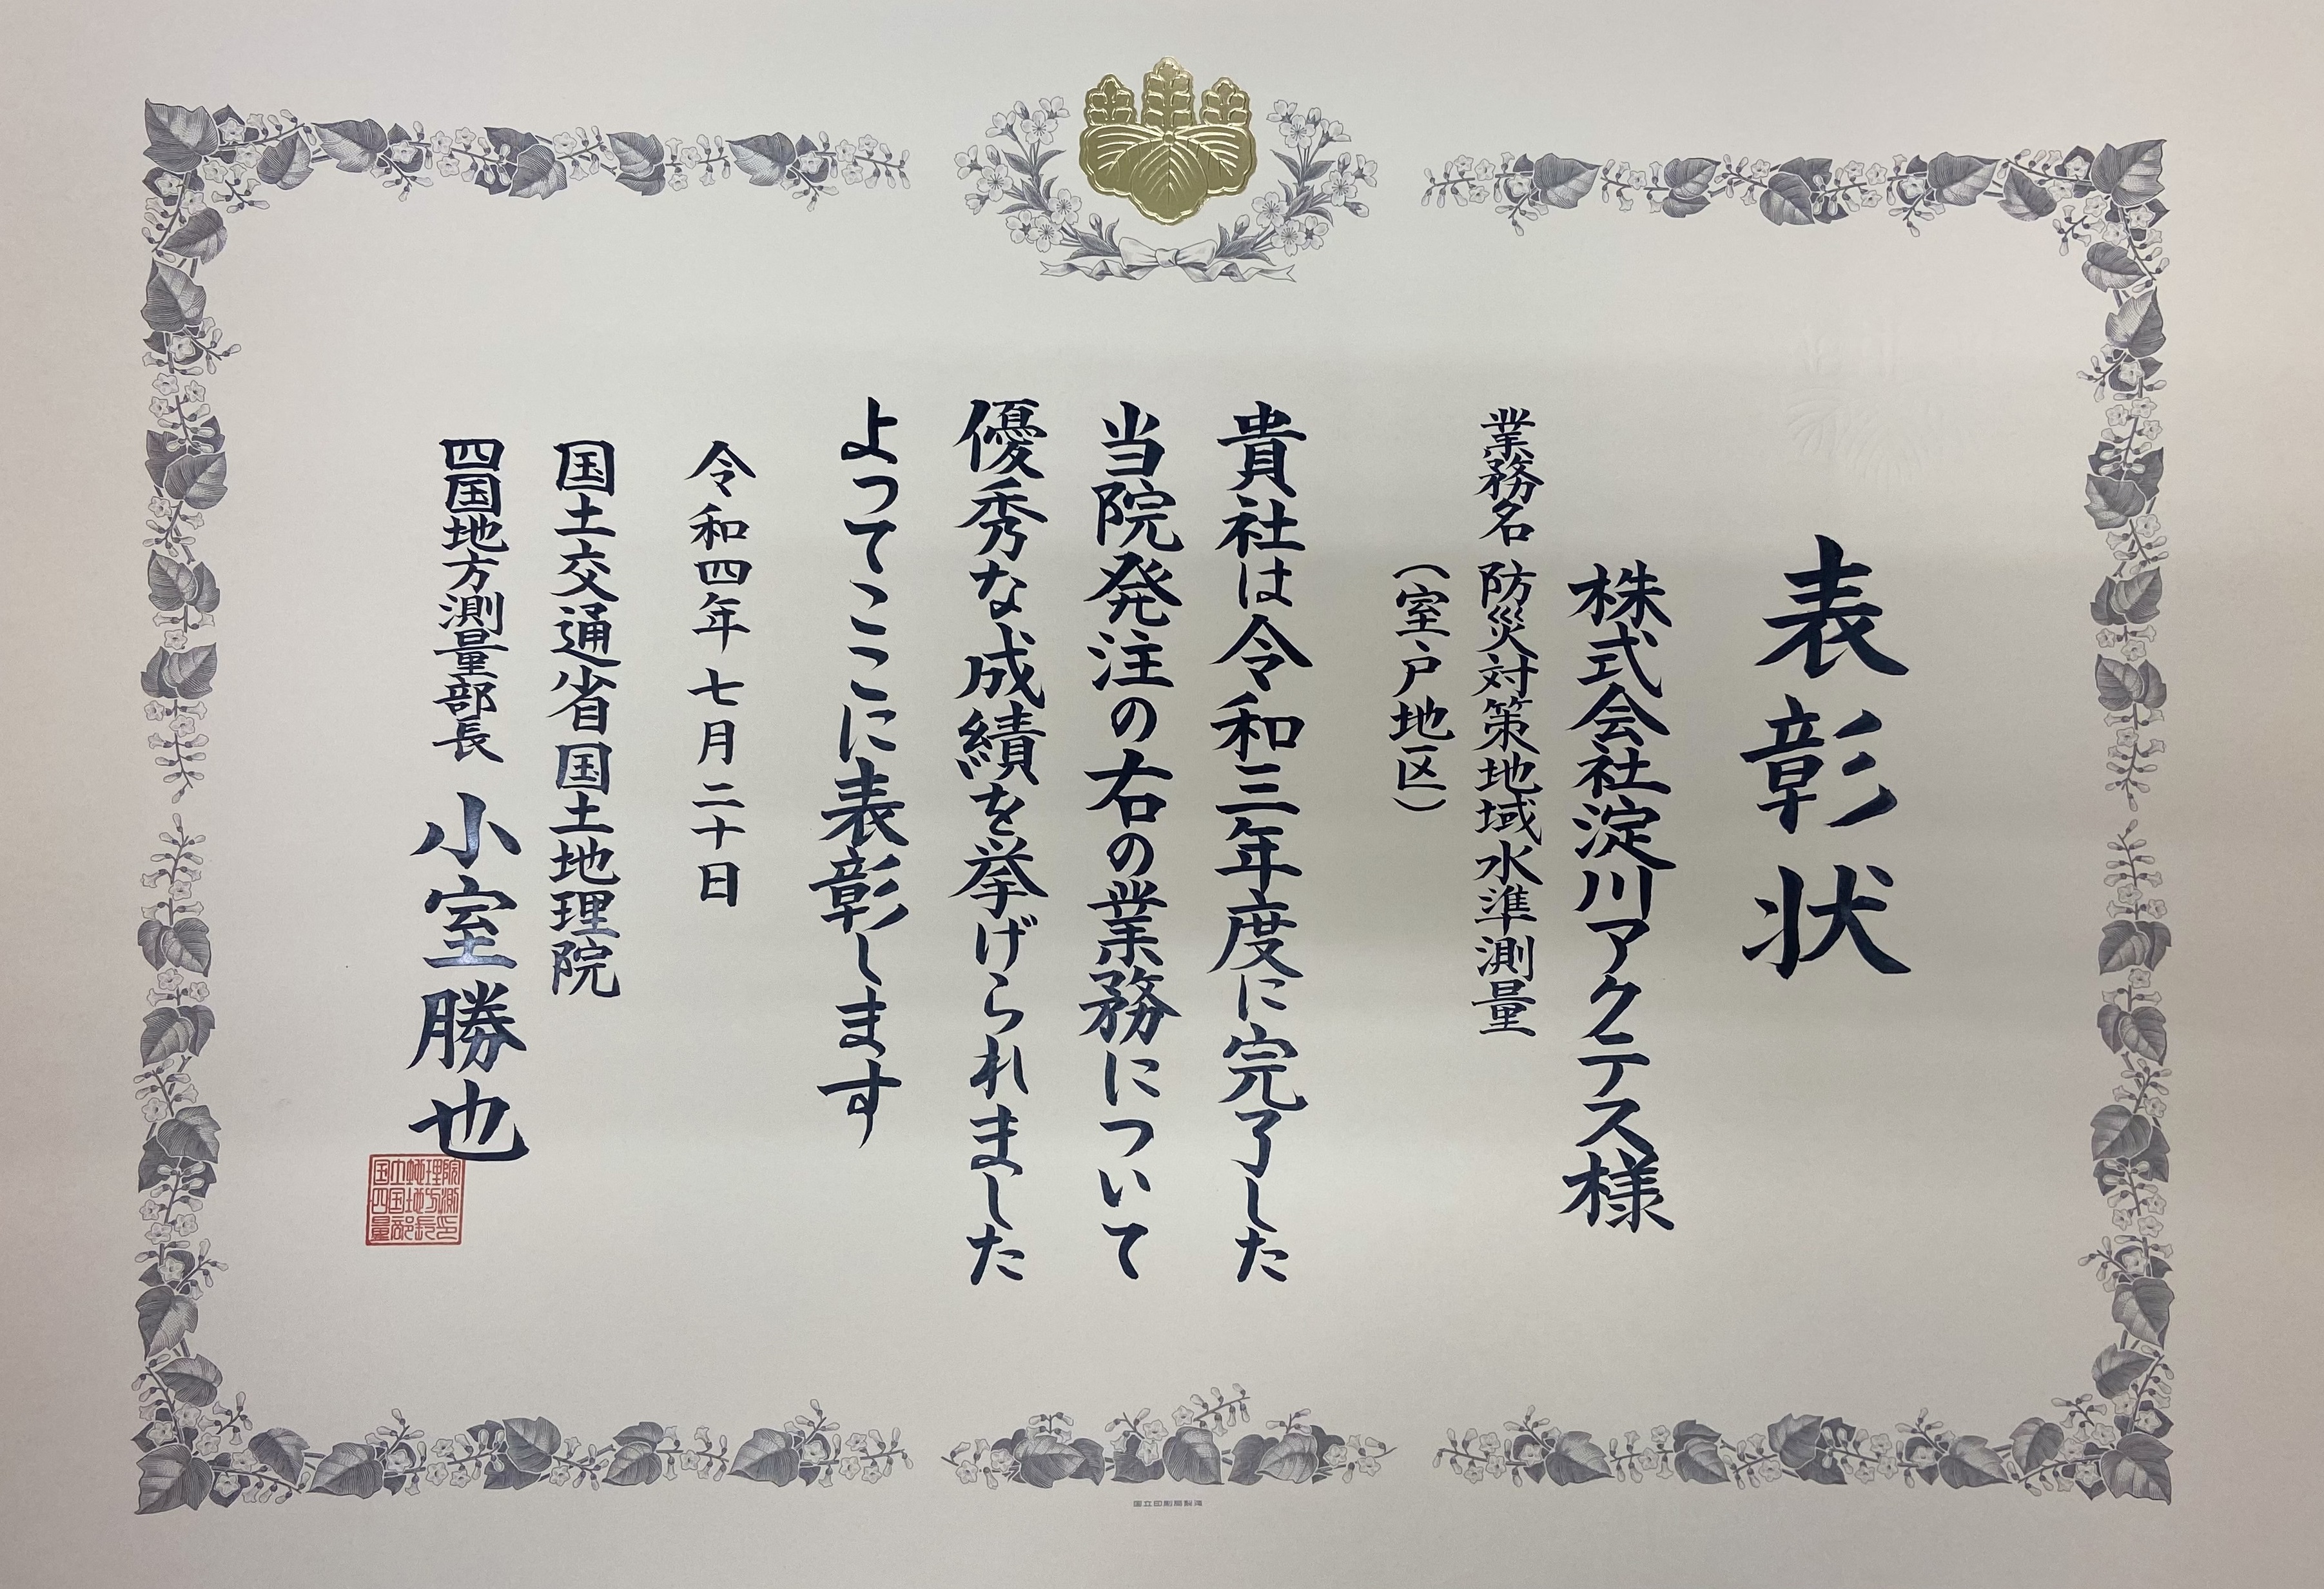 表彰状
株式会社淀川アクテス様
業務名 防災対策地域水準測量
（室戸地区）
貴社は令和三年度に完了した
当院発注の右の業務について
優秀な成績を挙げられました
よってここに表彰します
令和四年七月二十日
国土交通省国土地理院
四国地方測量部長 小室勝也
国土地理院
四国地方測
量部長印
国立印刷局製造